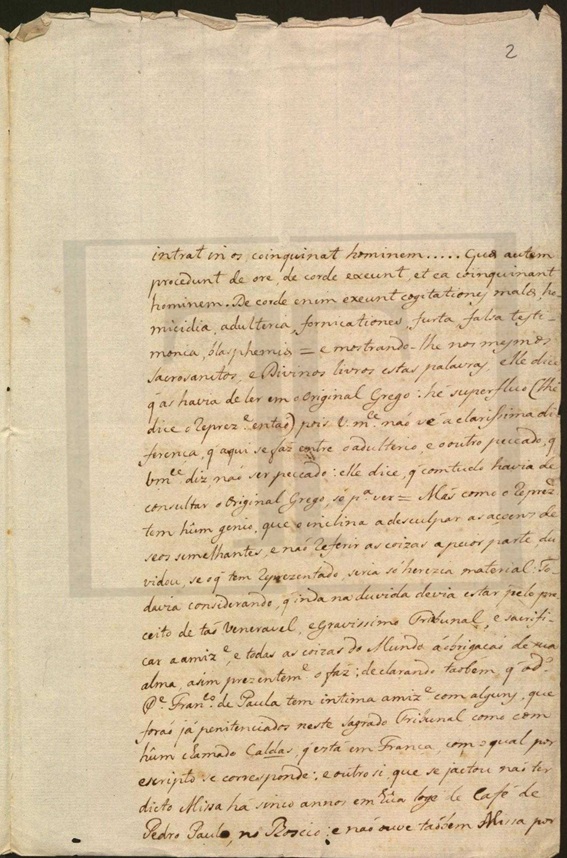 2
intrat in os, coinquinat hominem..... Quæ autem
procedunt de ore, de corde exeunt, et ea coinquinant
hominem. De corde enim exeunt cogitationes malæ, ho
micidia, adulteria, fornicationes, furta falsa testi-
monia, blasphemiæ = e mostrando-lhe nos mesmos
Sacrosantos, e Divinos livros estas palavras, elle dice
q̃ as havia de ler em o Original Grego: he superfluo (lhe
dice o Reprez.e entaõ) pois V. m.ce naõ vé a clarissima di
ferença, q̃ aqui se faz entre o adulterio, e o outro peccado, q̃
vm.ce diz naõ ser peccado: elle dice, q̃ comtudo havia de
consultar o Original Grego, só p.a ver = Mas como o Reprez.e
tem hûm genio, que o inclina a desculpar as açoens de
seos semelhantes, e naõ referir as coizas a peior parte du
vidou, se o q̃ tem reprezentado, seria só herezia material: To
davia considerando, q̃ inda na duvida devia estar pelo pre
ceito de taõ Veneravel, e Gravissimo Tribunal, e sacrifi-
car a amiz.e, e todas as coizas do Mundo á obrigaçaõ de sua
alma, asim prezentem.e o faz; declarando taobem q̃ o d.o
P.e Fran.co de Paula tem intima amiz.e com alguns, que
foraõ já penitenciados neste sagrado Tribunal como com
hûm chamado Caldas, q̃ está em França, com o qual por
escripto se corresponde; e outro si, que se jactou naõ ter
dicto Missa ha sinco annos em hũa loge de Café de
Pedro Paulo, no Roscio; e naõ ouve taõbem Missa por